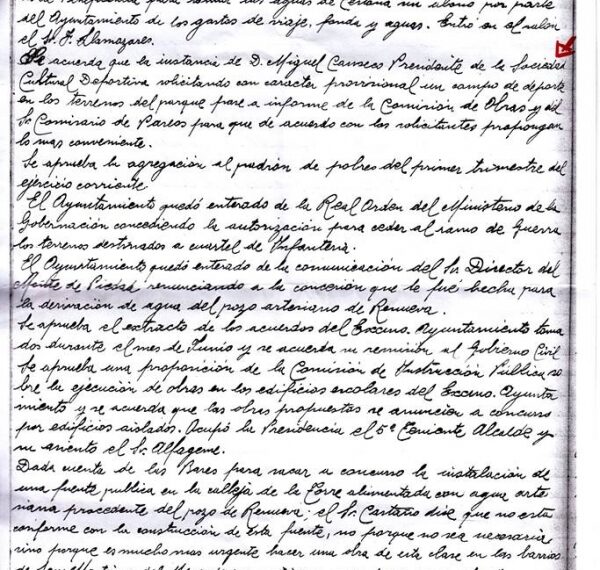 para tomar las aguas de Cestona un abono por parte
del Ayuntamiento de los gastos de viaje, fonda y aguas. Entró en el salón
el Sr. F. Llamazares.
Se acuerda que la instancia de D. Miguel Canseco Presidente de la Sociedad
Cultural Deportiva solicitando con caracter provisional un campo de deporte
en los terrenos del parque pase a informe de la Comisión de Obras y del
Sr. Comisario de Paseos para que de acuerdo con los solicitantes propongan
lo mas conveniente.
Se aprueba la agregación al padrón de pobres del primer trimestre del
ejercicio corriente.
El Ayuntamiento quedó enterado de la Real Orden del Ministerio de la
Gobernación concediendo la autorización para ceder al ramo de Guerra
los terrenos destinados a cuartel de Infanteria.
El Ayuntamiento quedó enterado de la comunicación del Sr. Director del
Monte de Piedad renunciando a la concesión que le fué hecha para
la derivación de agua del pozo arteriano de Renueva.
Se aprueba el extracto de los acuerdos del Excmo. Ayuntamiento toma
dos durante el mes de Junio y se acuerda su remisión al Gobierno Civil
Se aprueba una proposición de la Comisión de Instrucción Publica so
bre la ejecución de obras en los edificios escolares del Excmo. Ayunta
miento y se acuerda que las obras propuestas se anuncien a concurso
por edificios aislados. Ocupó la Presidencia el 5º Teniente Alcalde y
su asiento el Sr. Alfageme.
Dada cuenta de las Bases para sacar a concurso la instalación de
una fuente publica en la calleja de la Torre alimentada con agua arte
riana procedente del pozo de Renueva, el Sr. Castaño dice que no está
conforme con la construcción de esta fuente, no porque no sea necesaria
sino porque es mucho mas urgente hacer una obra de esta clase en los barrios